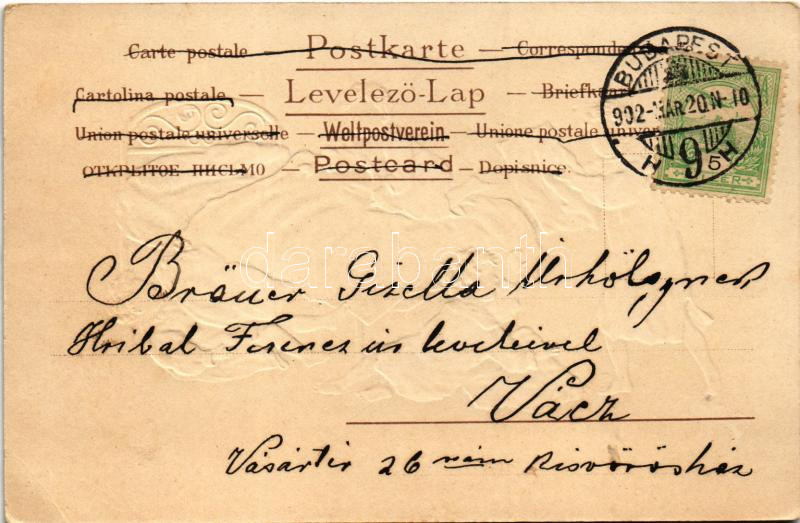 Carte postale — Postkarte — Correspond
Cartolina postale — Levelező-Lap — Briefka
Union postale universelle — Weltpostverein — Unione postale univer
ОТКРЫТОЕ ПИСЬМО — Postcard — Dopisnice.
BUDAPEST
902-MAR 20. N-10
H 9 5 H
Bräuer Gizella Urhölgynek
Hribal Ferencz úr leveleivel
Vácz
Vásártér 26 szám Kisvörösház
darabanth